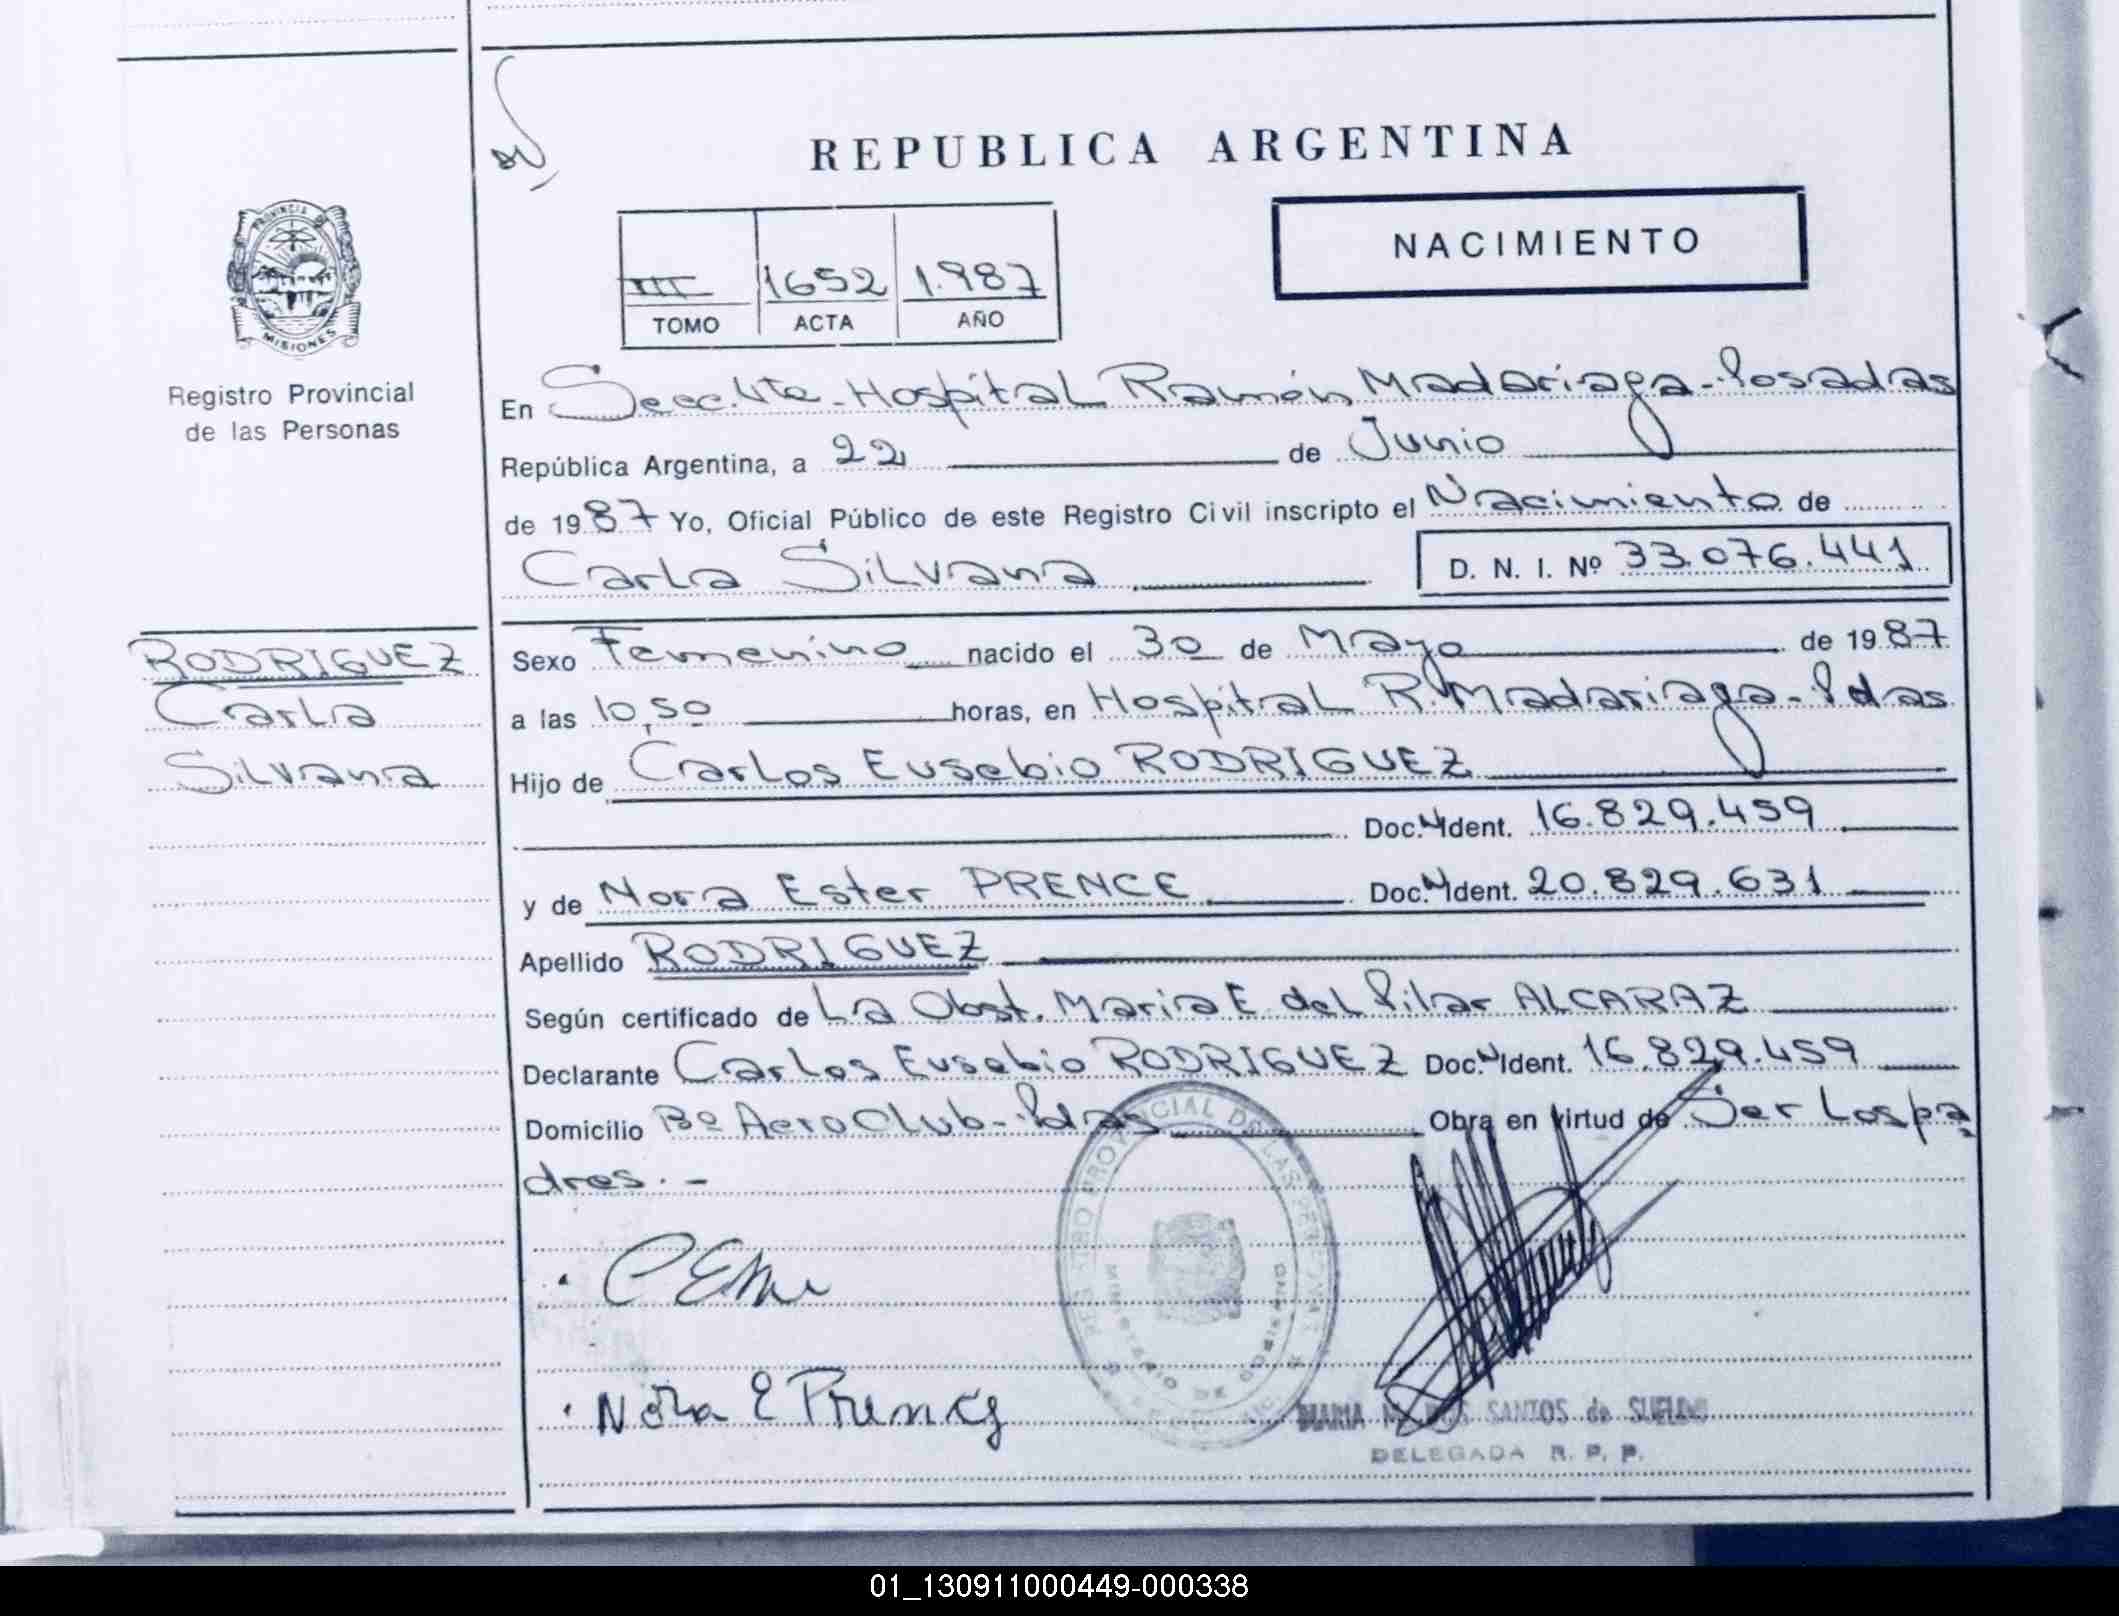 REPUBLICA ARGENTINA
NACIMIENTO
III 1652 1.987
TOMO ACTA AÑO
PROVINCIA DE
MISIONES
Registro Provincial
de las Personas
En Secc. Hospital Ramón Madariaga - Posadas
República Argentina, a 22 de Junio
de 1987 Yo, Oficial Público de este Registro Civil inscripto el Nacimiento de
Carla Silvana D. N. I. Nº 33.076.441
RODRIGUEZ
Carla
Silvana
Sexo Femenino nacido el 30 de Mayo de 1987
a las 10,50 horas, en Hospital R. Madariaga - Pdas
Hijo de Carlos Eusebio RODRIGUEZ
Doc. N Ident. 16.829.459
y de Nora Ester PRENCE Doc. N Ident. 20.829.631
Apellido RODRIGUEZ
Según certificado de La Obst. Maria E. del Pilar ALCARAZ
Declarante Carlos Eusebio RODRIGUEZ Doc. N Ident. 16.829.459
Domicilio Bº Aero Club - Pdas Obra en virtud de Ser Los pa
dres. -
Nora E Prence
MARIA DOS SANTOS de SUELDO
DELEGADA R. P. P.
01_130911000449-000338